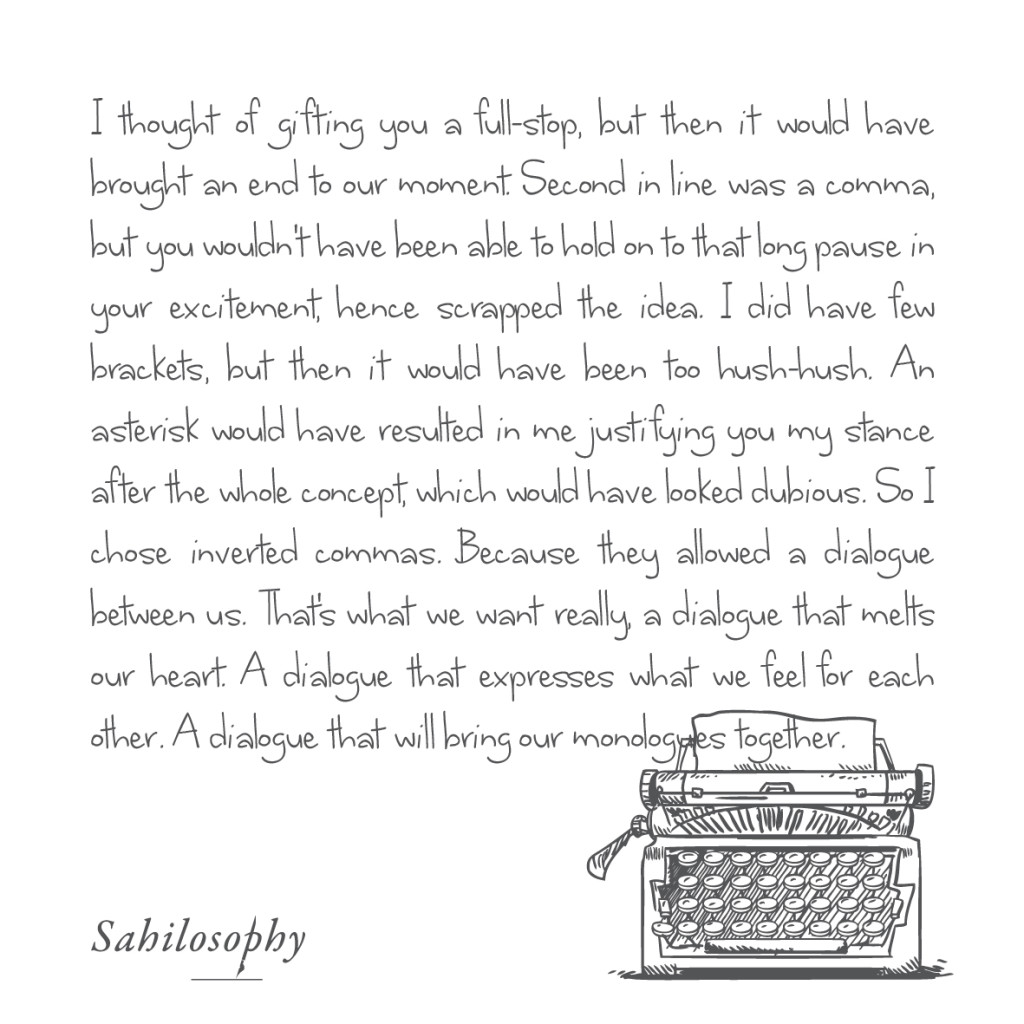 I thought of gifting you a full-stop, but then it would have
brought an end to our moment. Second in line was a comma,
but you wouldn't have been able to hold on to that long pause in
your excitement, hence scrapped the idea. I did have few
brackets, but then it would have been too hush-hush. An
asterisk would have resulted in me justifying you my stance
after the whole concept, which would have looked dubious. So I
chose inverted commas. Because they allowed a dialogue
between us. That's what we want really, a dialogue that melts
our heart. A dialogue that expresses what we feel for each
other. A dialogue that will bring our monologues together.
Sahilosophy